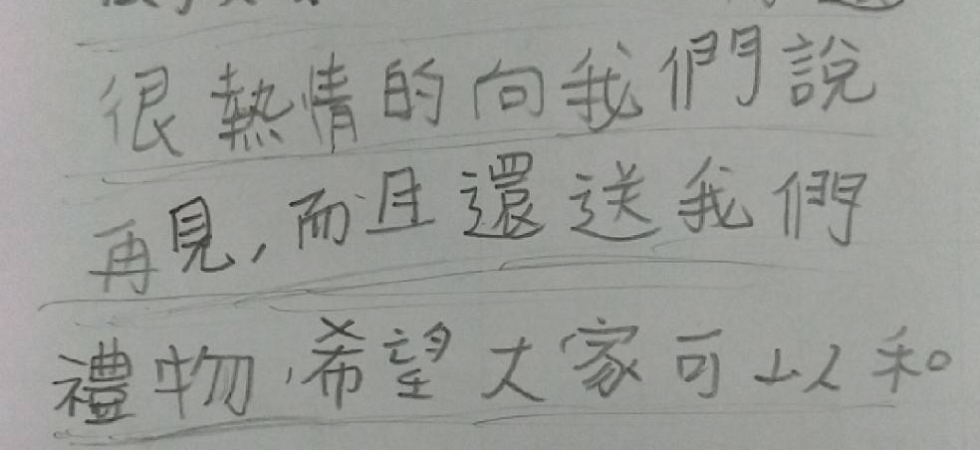 很熱情的向我們說
再見,而且還送我們
禮物,希望大家可以和